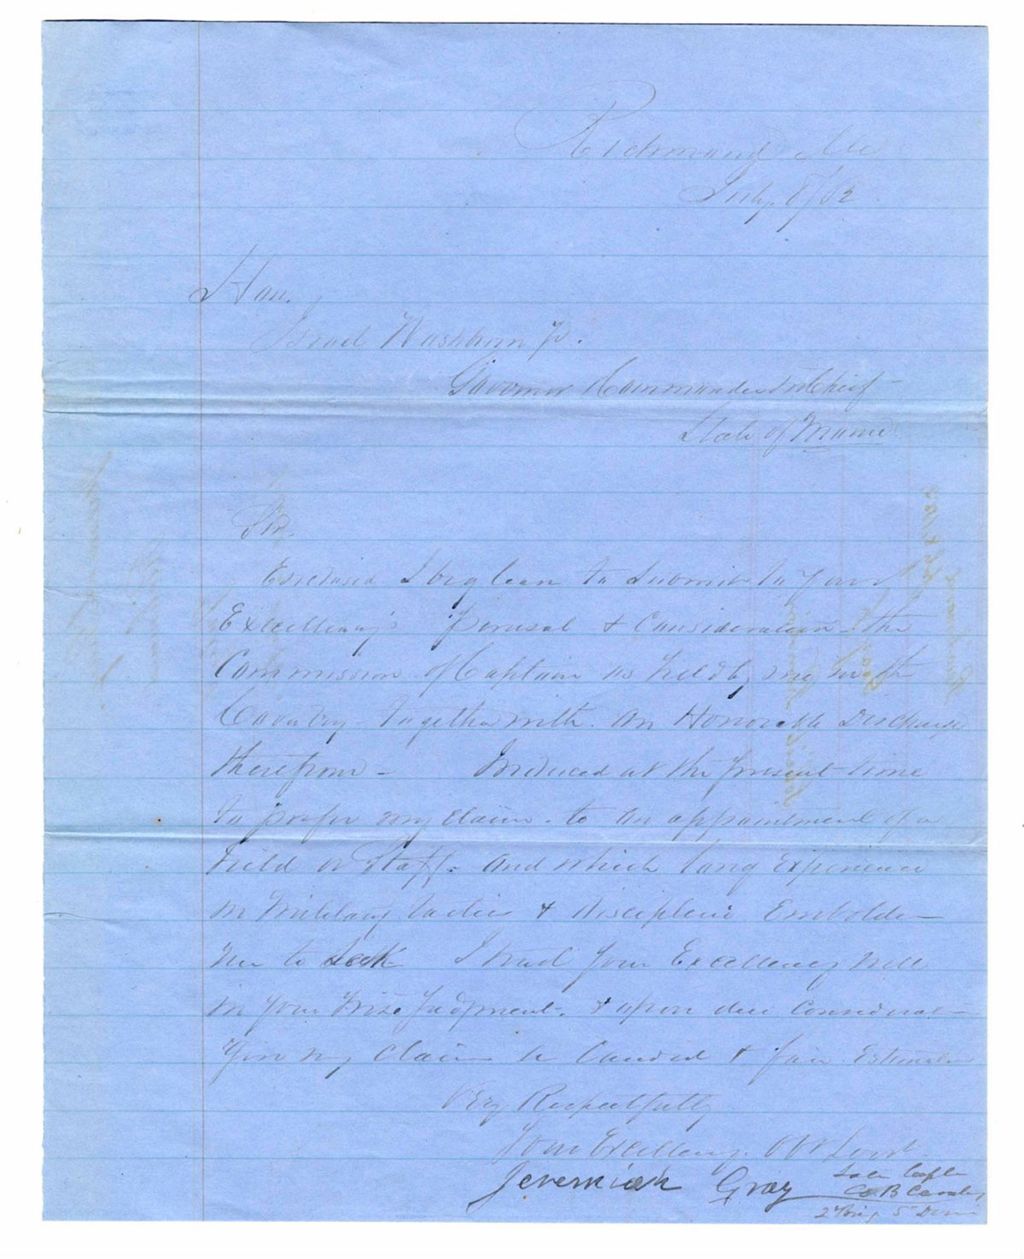 Richmond Me
July 8/62
Hon.
Israel Washburn Jr.
Governor & Commander in Chief
State of Maine
Sir.
Enclosed I beg leave to submit to your
Excellency's perusal & Consideration - the
Commission of Captain as held by me in the
Cavalry - together with an Honorable Discharge
therefrom - Induced at the present time
to prefer my claim - to an appointment of a
Field or Staff. and which long Experience
in Military tactics & discipline Embolden
me to seek I trust your Excellency will
in your Wise Judgment. & upon due Considerat-
my claim a Candid & fair Estimate
Very Respectfully
Your Excellency Obt Servt
Jeremiah Gray
Late Capt
Co. B Cavalry
2" Brig 5" Divn